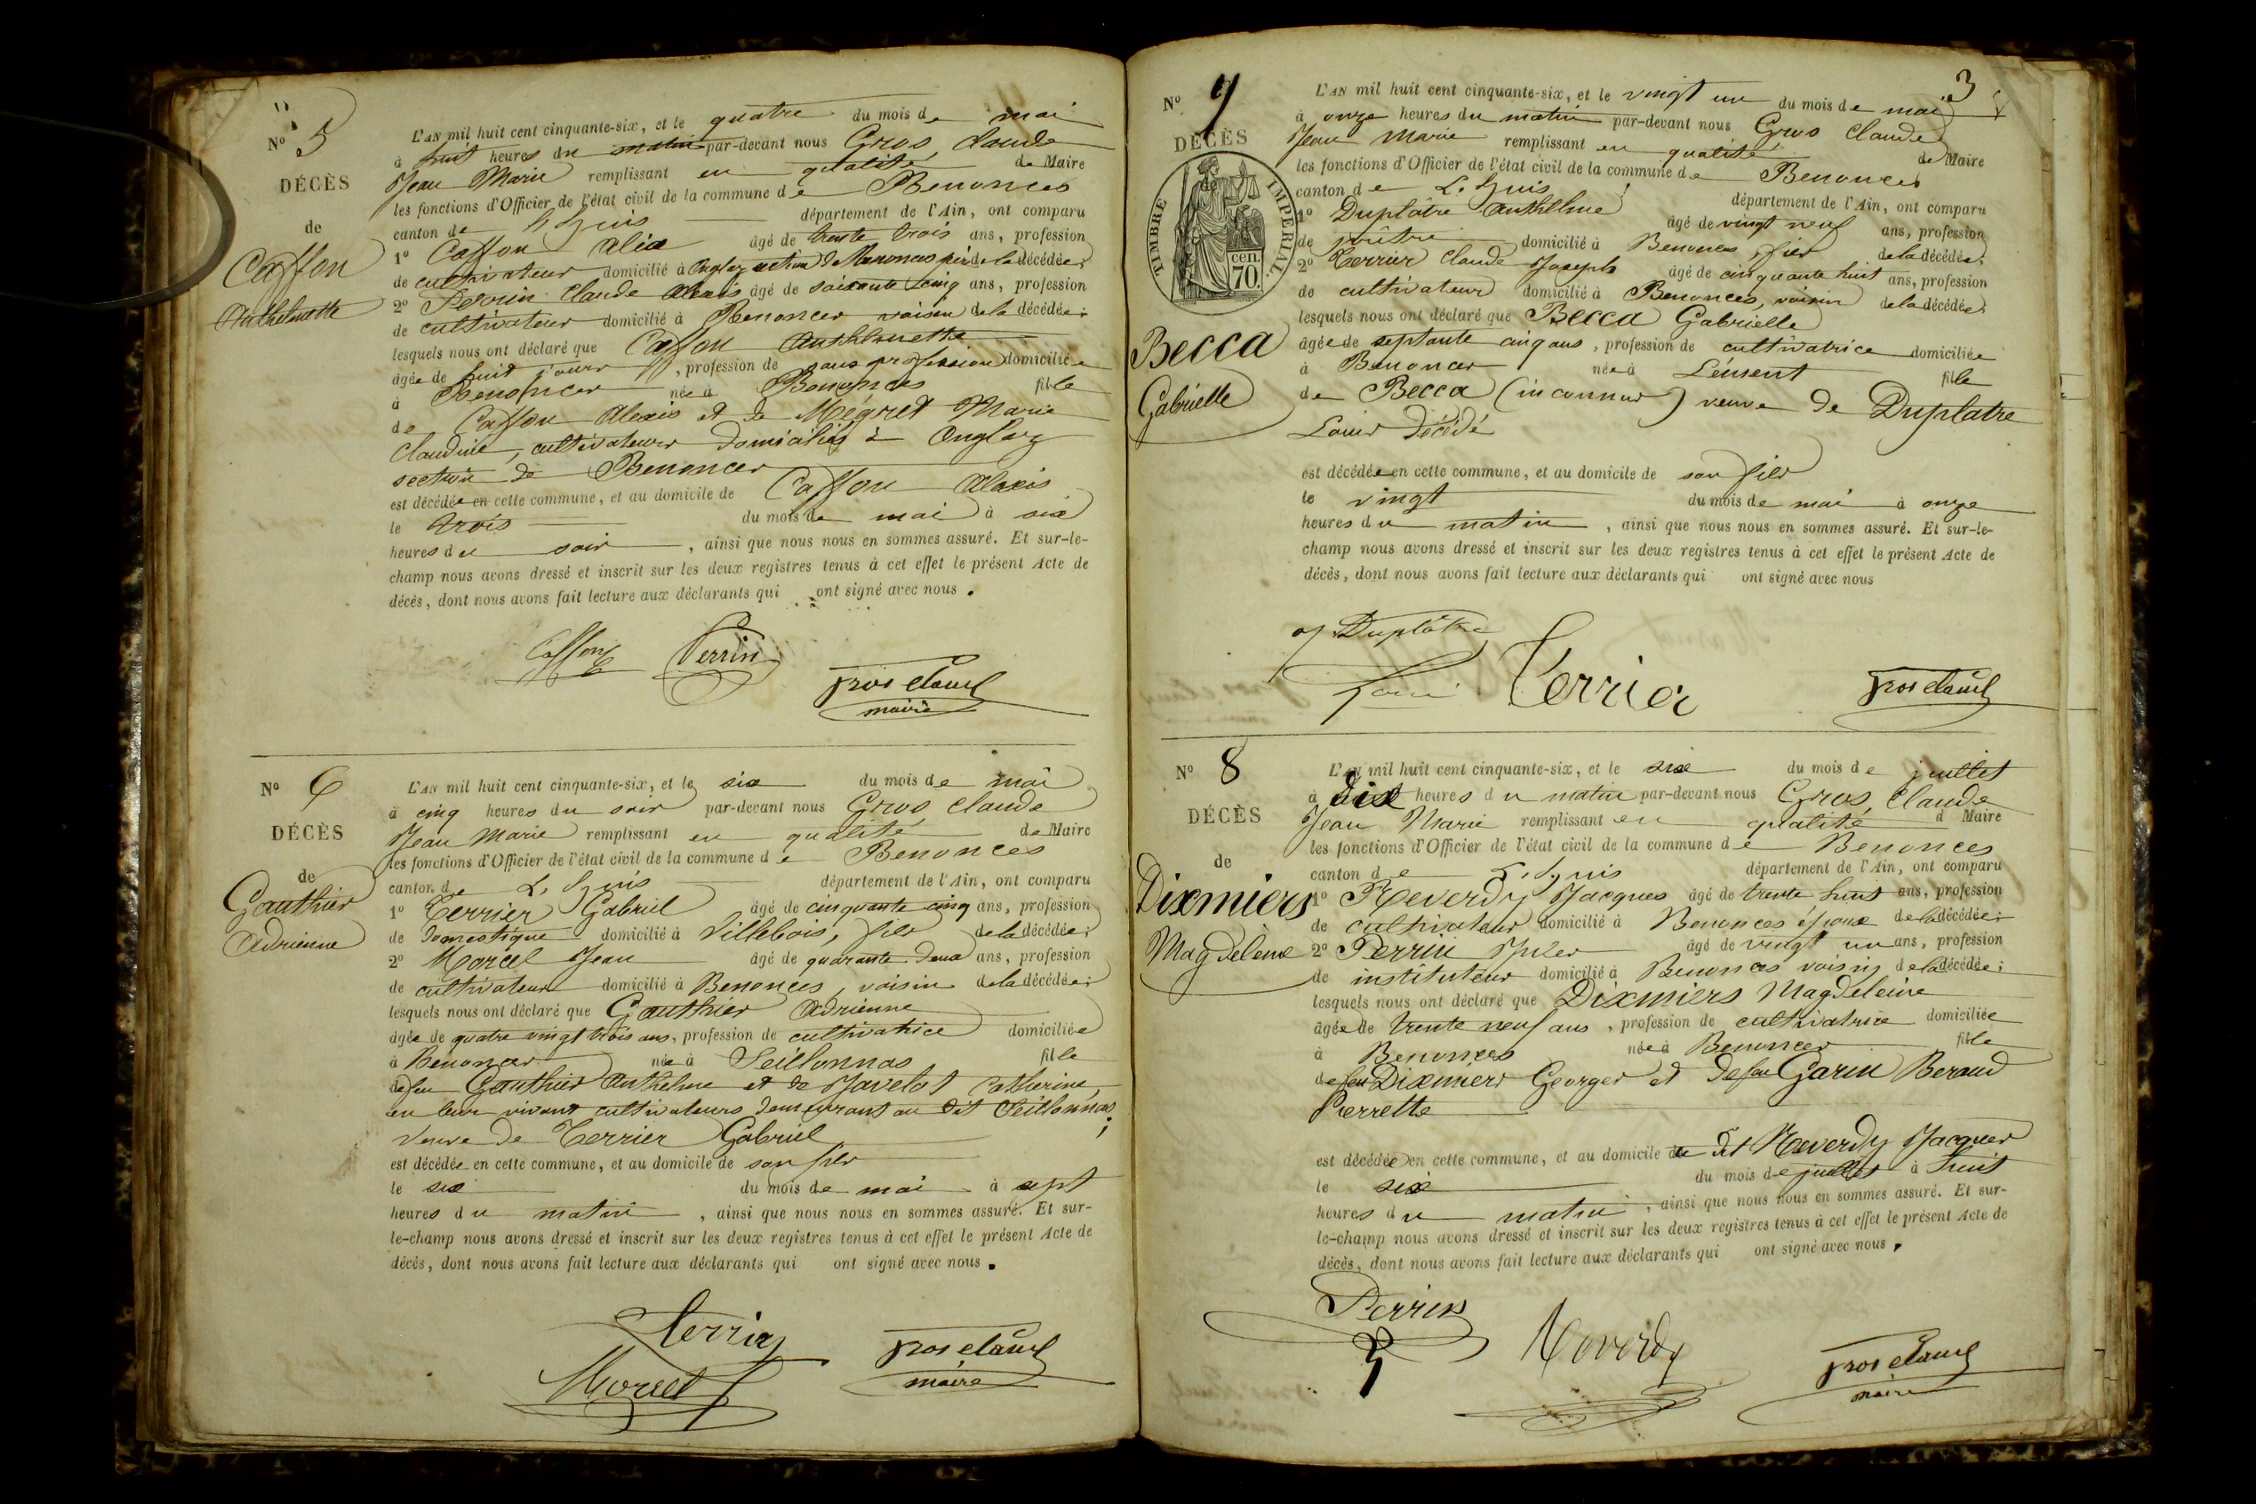 N° 5
DÉCÈS
de
Caffon
Anthelmette
L'AN mil huit cent cinquante-six, et le quatre du mois de mai
à huit heures du matin par-devant nous Gros, Claude
Jean Marie remplissant en qualité de Maire
les fonctions d'Officier de l'état civil de la commune de Benonces
canton de Lhuis département de l'Ain, ont comparu
1° Caffon Alix âgé de trente trois ans, profession
de cultivateur domicilié à Onglaz section de Benonces père de la décédée;
2° Perrin Claude Alexis âgé de soixante cinq ans, profession
de cultivateur domicilié à Benonces voisin de la décédée;
lesquels nous ont déclaré que Caffon Anthelmette
âgée de huit jours, profession de sans profession domiciliée
à Benonces née à Benonces fille
de Caffon Alexis et de Mégret Marie
Claudine, cultivateurs domiciliés à Onglaz
section de Benonces
est décédée en cette commune, et au domicile de Caffon Alexis
le trois du mois de mai à six
heures du soir, ainsi que nous nous en sommes assuré. Et sur-le-
champ nous avons dressé et inscrit sur les deux registres tenus à cet effet le présent Acte de
décès, dont nous avons fait lecture aux déclarants qui ont signé avec nous.
Caffon Perrin
Gros Claude
maire
N° 6
DÉCÈS
de
Gauthier
Adrienne
L'AN mil huit cent cinquante-six, et le six du mois de mai
à cinq heures du soir par-devant nous Gros, Claude
Jean Marie remplissant en qualité de Maire
les fonctions d'Officier de l'état civil de la commune de Benonces
canton de Lhuis département de l'Ain, ont comparu
1° Terrier Gabriel âgé de cinquante cinq ans, profession
de domestique domicilié à Villebois, fils de la décédée;
2° Morcel Jean âgé de quarante deux ans, profession
de cultivateur domicilié à Benonces, voisin de la décédée;
lesquels nous ont déclaré que Gauthier Adrienne
âgée de quatre vingt trois ans, profession de cultivatrice domiciliée
à Benonces née à Seillonnas fille
de feu Gauthier Anthelme et de Javelot Catherine,
en leur vivant cultivateurs demeurant au dit Seillonnas;
veuve de Terrier Gabriel
est décédée en cette commune, et au domicile de son fils
le six du mois de mai à sept
heures du matin, ainsi que nous nous en sommes assuré. Et sur-
le-champ nous avons dressé et inscrit sur les deux registres tenus à cet effet le présent Acte de
décès, dont nous avons fait lecture aux déclarants qui ont signé avec nous.
Terrier
Morcel
Gros Claude
maire
3
N° 7
DÉCÈS
de
TIMBRE IMPÉRIAL.
70 cen.
Becca
Gabrielle
L'AN mil huit cent cinquante-six, et le vingt un du mois de mai
à onze heures du matin par-devant nous Gros Claude
Jean Marie remplissant en qualité de Maire
les fonctions d'Officier de l'état civil de la commune de Benonces
canton de Lhuis département de l'Ain, ont comparu
1° Duplâtre Anthelme âgé de vingt neuf ans, profession
de domicilié à Benonces, fils de la décédée;
2° Terrier Claude Joseph âgé de cinquante huit ans, profession
de cultivateur domicilié à Benonces, voisin de la décédée;
lesquels nous ont déclaré que Becca Gabrielle
âgée de septante cinq ans, profession de cultivatrice domiciliée
à Benonces née à fille
de Becca (inconnus) veuve de Duplatre
Louis décédé
est décédée en cette commune, et au domicile de son fils
le vingt du mois de mai à onze
heures du matin, ainsi que nous nous en sommes assuré. Et sur-le-
champ nous avons dressé et inscrit sur les deux registres tenus à cet effet le présent Acte de
décès, dont nous avons fait lecture aux déclarants qui ont signé avec nous
Duplâtre
Terrier
Gros Claude
N° 8
DÉCÈS
de
Dixmiers
Magdeleine
L'AN mil huit cent cinquante-six, et le six du mois de juillet
à dix heures du matin par-devant nous Gros, Claude
Jean Marie remplissant en qualité d Maire
les fonctions d'Officier de l'état civil de la commune de Benonces
canton de Lhuis département de l'Ain, ont comparu
1° Reverdy Jacques âgé de trente huit ans, profession
de cultivateur domicilié à Benonces époux de la décédée;
2° Perrin Jules âgé de vingt un ans, profession
de instituteur domicilié à Benonces voisin de la décédée;
lesquels nous ont déclaré que Dixmiers Magdeleine
âgée de trente neuf ans, profession de cultivatrice domiciliée
à Benonces née à Benonces fille
de feu Dixmiers Georges et de feu Garin Beraud
Pierrette
est décédée en cette commune, et au domicile du dit Reverdy Jacques
le six du mois de juillet à huit
heures du matin, ainsi que nous nous en sommes assuré. Et sur-
le-champ nous avons dressé et inscrit sur les deux registres tenus à cet effet le présent Acte de
décès, dont nous avons fait lecture aux déclarants qui ont signé avec nous.
Perrin
Reverdy
Gros Claude
maire